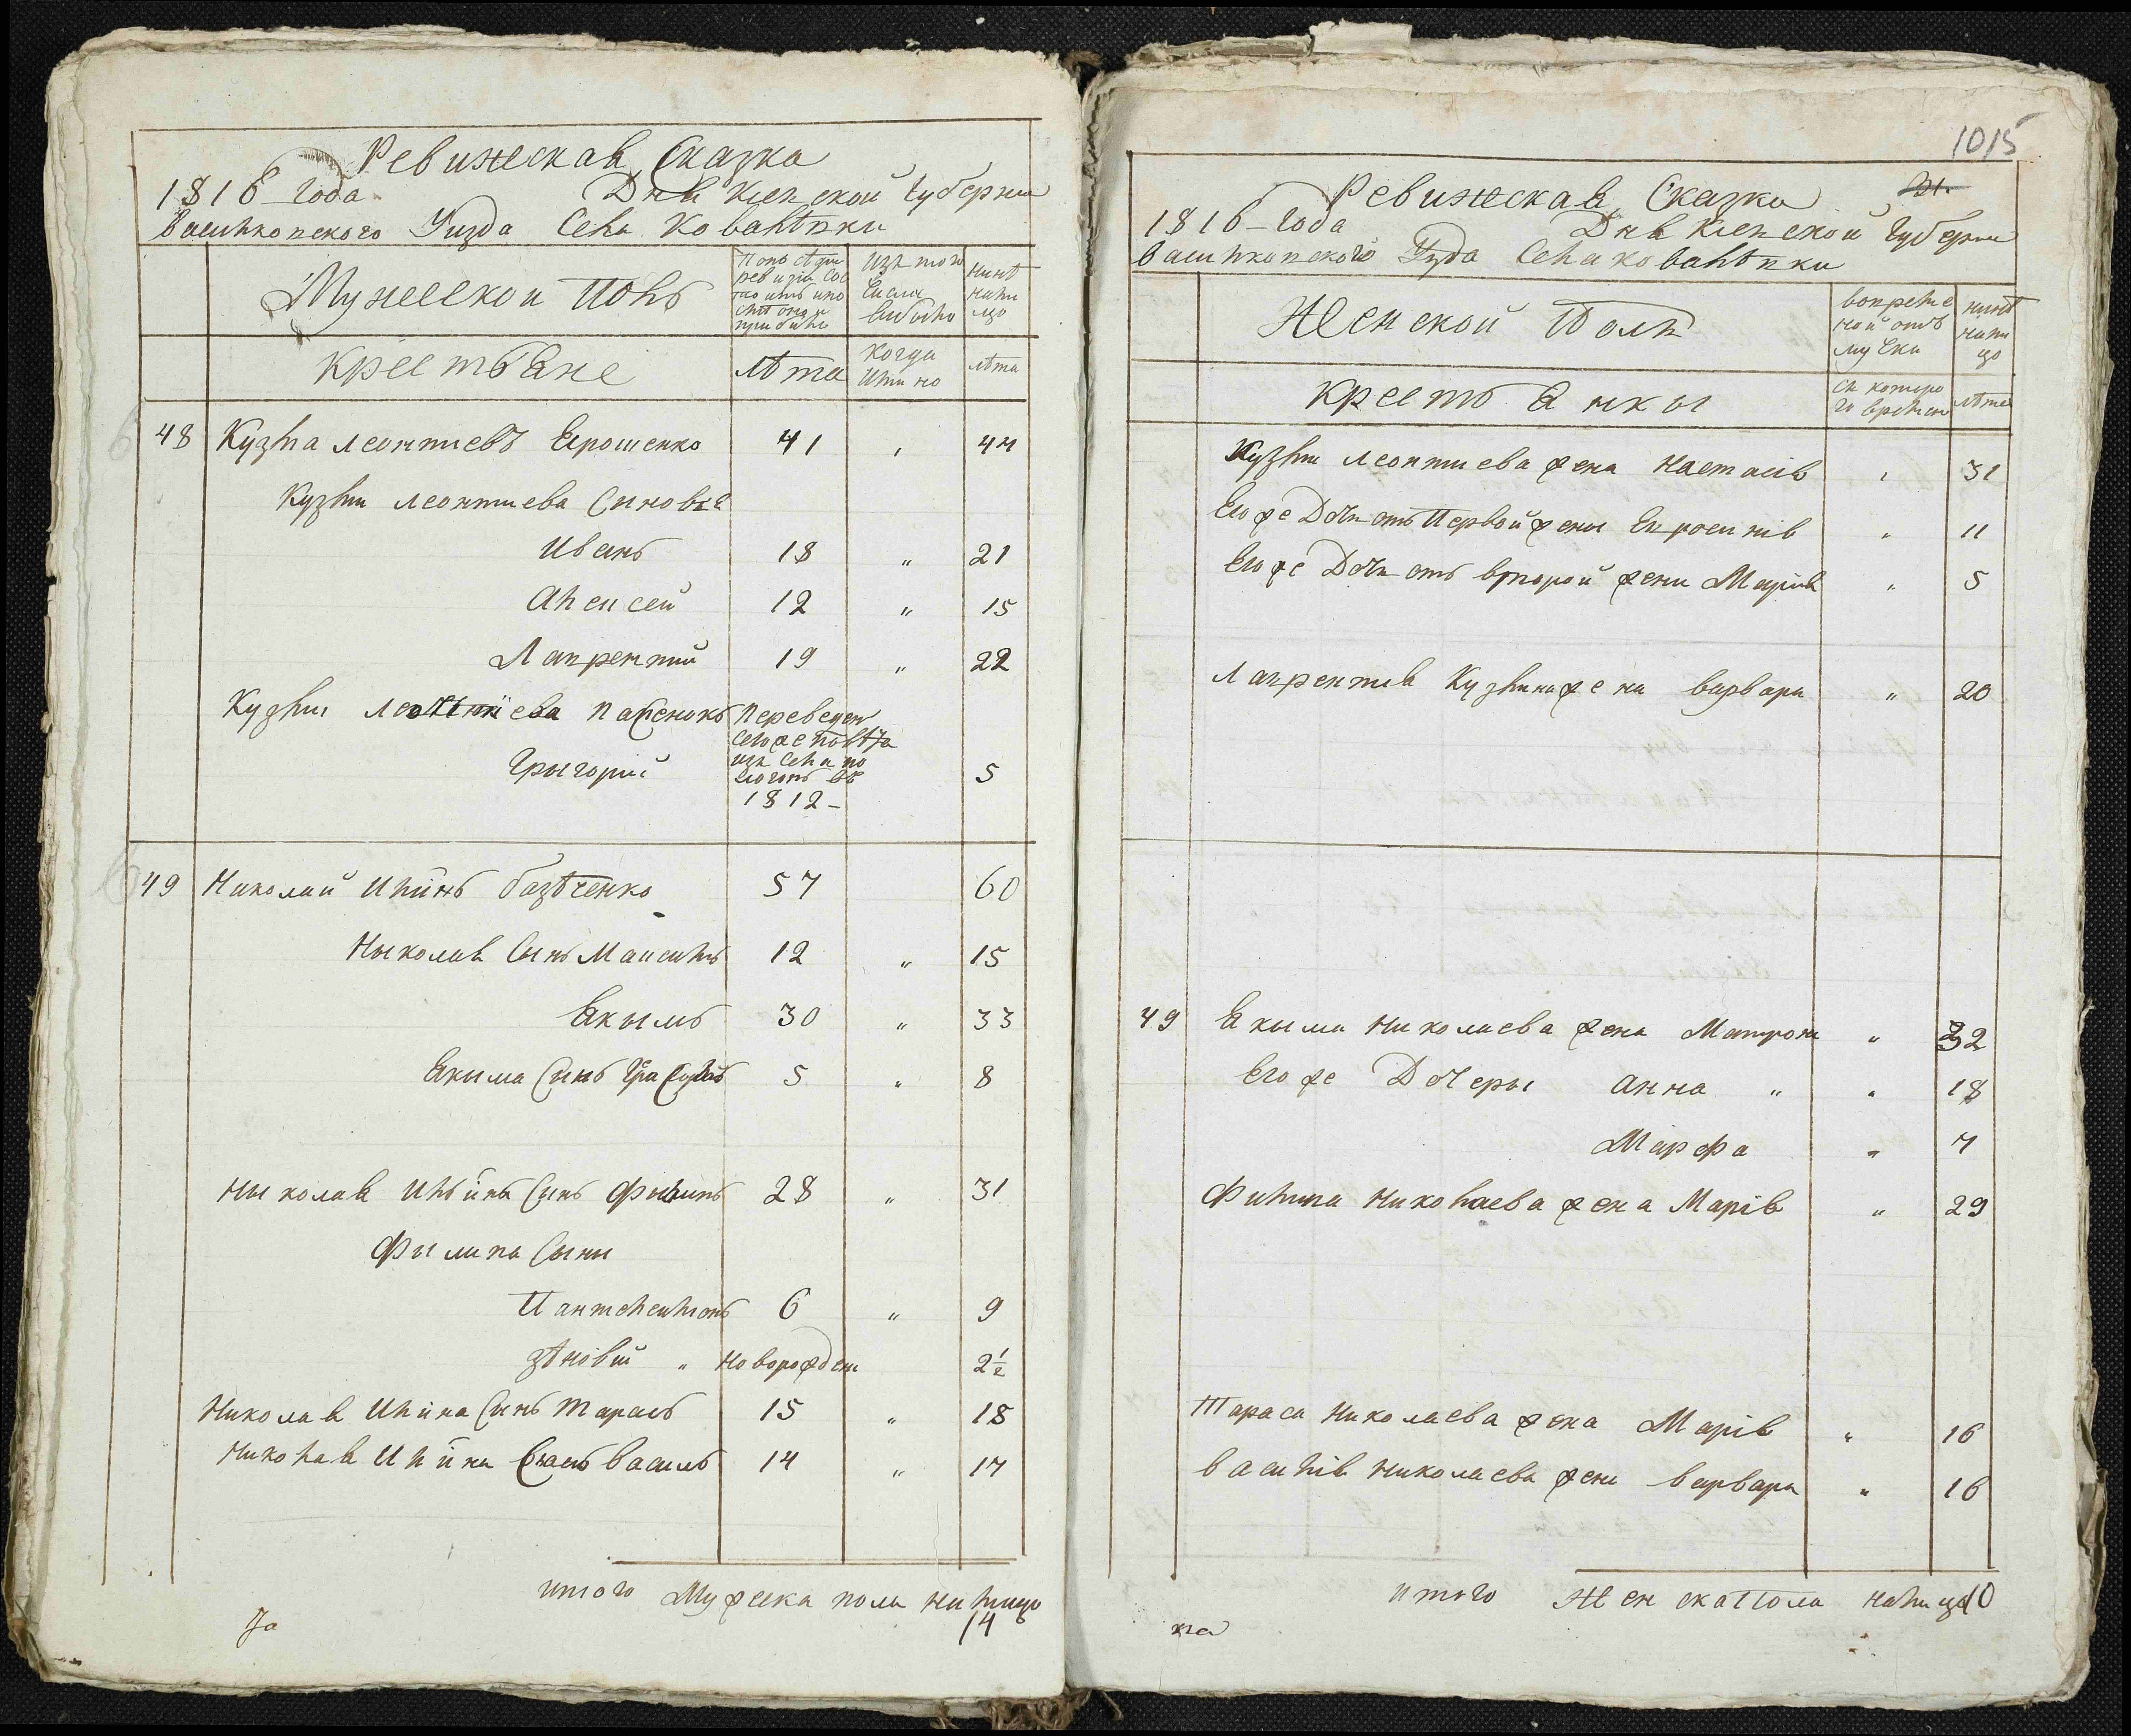 Ревижская Сказка
1816 года Дня Киевской Губернии
Васильковского Уизда Села Ковалѣвки
Мужеской Полъ
По последней ревизии состояло и после оной прибыло
Изъ того числа выбыло
нынѣ на лицо
крестьяне
лѣта
когда именно
лѣта
48 Кузма Леонтиевъ Ярошенко 41 " 44
Кузмы Леонтиева Синовья
Иванъ 18 " 21
Алексей 12 " 15
Лаврентий 19 " 22
Кузмы Леонтиева пасенокъ
Григорий 5
Переведен
сегоже повѣта
изъ села
въ
1812
49 Николай Ильинъ базѣченко 57 60
Николая Сынъ Максимъ 12 " 15
Якымъ 30 " 33
Якыма Синъ 5 " 8
Николая Ильина Синъ Филипъ 28 " 31
Филипа Сыни
Пантелеймонъ 6 " 9
Зѣновий " новорожден 2 1/2
Николая Ильина Синъ Тарасъ 15 " 18
Николая Ильина Синъ Василь 14 " 17
итого Мужеска пола на лицо
14
За
1015
31.
Ревижская Сказка
1816 года Дня Киевской Губернии
Васильковского Уизда Села Ковалѣвки
Женской Полъ
во временной отлучки
нынѣ на лицо
крестьянкы
съ которого времени
лѣта
Кузмы Леонтиева жена Настасія " 31
Его же Дочь отъ Первой жены Евросинія " 11
Его же Дочь отъ второй жены Марія " 5
Лаврентия Кузмина жена варвара " 20
49 Якыма Николаева жена Матрона " 32
Его же Дочеры Анна " " 18
Марфа " 7
Филипа Николаева жена Марія " 29
Тараса Николаева жена Марія " 16
василія Николаева жена варвара " 16
итого Женска Пола на лицо 10